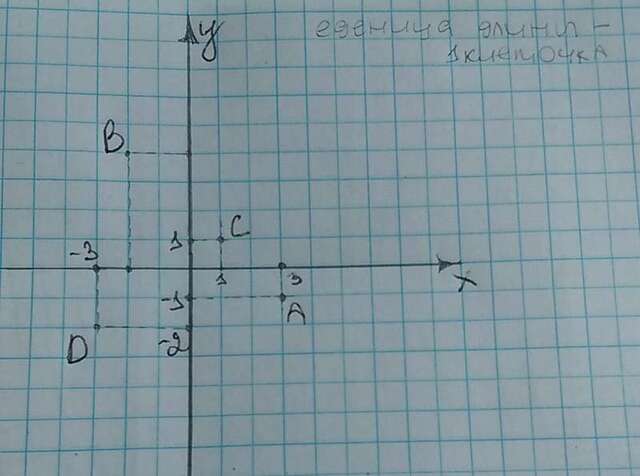 y
еденица длины -
1 клеточка
B
1
C
-3
1
3
x
-1
A
D
-2